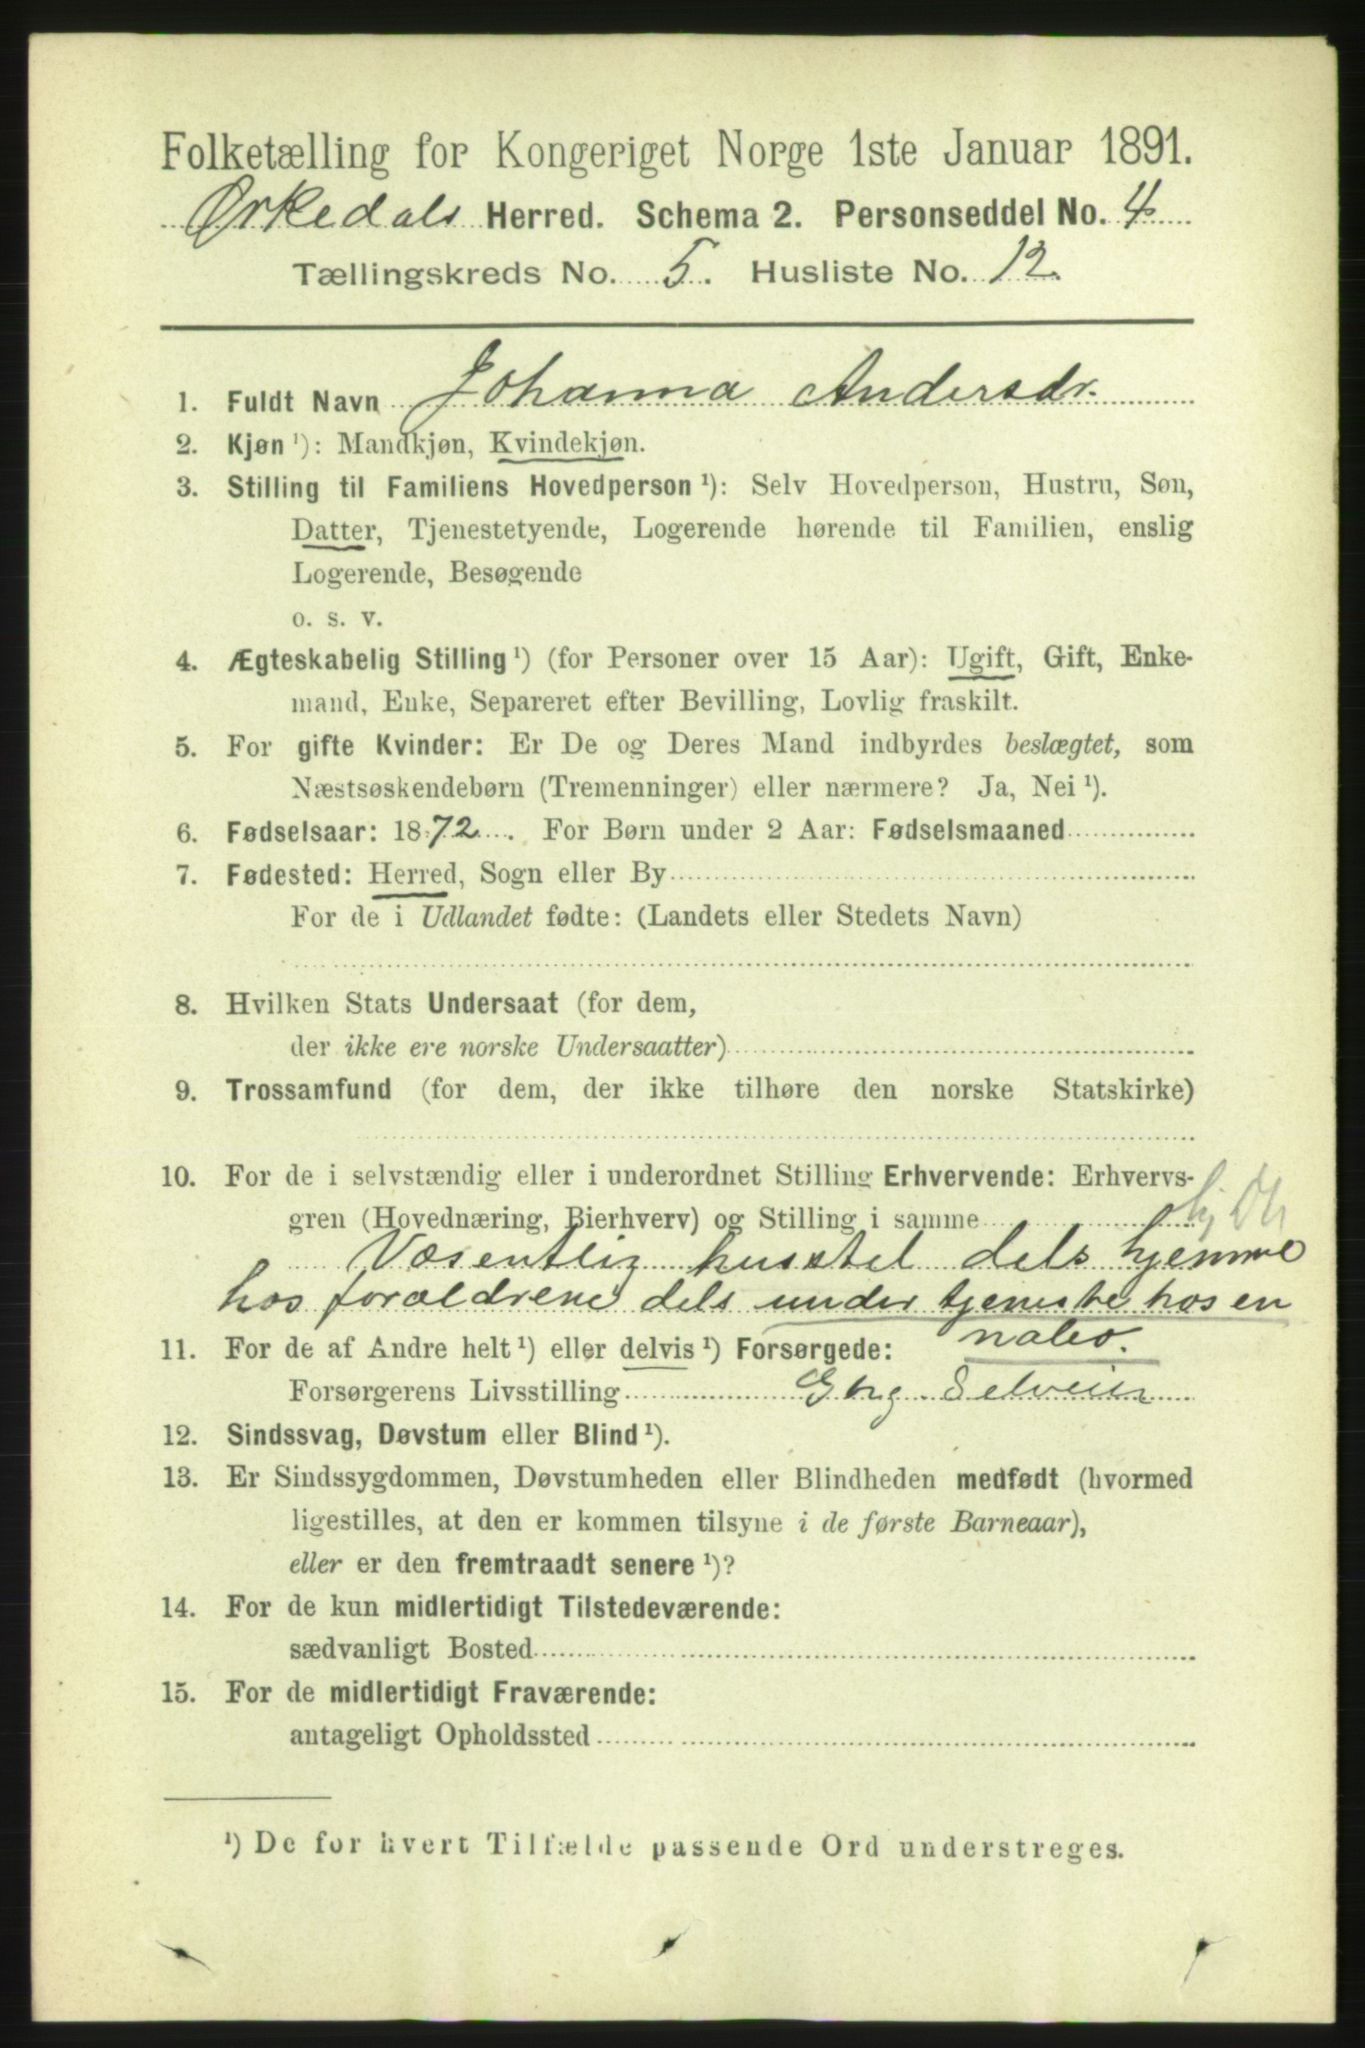 Folketælling for Kongeriget Norge 1ste Januar 1891.
Ørkedals Herred. Schema 2. Personseddel No. 4
Tællingskreds No. 5. Husliste No. 12.
1. Fuldt Navn Johanna Andersdr.
2. Kjøn ¹): Mandkjøn, Kvindekjøn.
3. Stilling til Familiens Hovedperson ¹): Selv Hovedperson, Hustru, Søn,
Datter, Tjenestetyende, Logerende hørende til Familien, enslig
Logerende, Besøgende
o. s. v.
4. Ægteskabelig Stilling ¹) (for Personer over 15 Aar): Ugift, Gift, Enke-
mand, Enke, Separeret efter Bevilling, Lovlig fraskilt.
5. For gifte Kvinder: Er De og Deres Mand indbyrdes beslægtet, som
Næstsøskendebørn (Tremenninger) eller nærmere? Ja, Nei ¹).
6. Fødselsaar: 1872. For Børn under 2 Aar: Fødselsmaaned
7. Fødested: Herred, Sogn eller By
For de i Udlandet fødte: (Landets eller Stedets Navn)
8. Hvilken Stats Undersaat (for dem,
der ikke ere norske Undersaatter)
9. Trossamfund (for dem, der ikke tilhøre den norske Statskirke)
10. For de i selvstændig eller i underordnet Stilling Erhvervende: Erhvervs-
gren (Hovednæring, Bierhverv) og Stilling i samme
Væsentlig husstel dels hjemme
hos forældrene dels under tjeneste hos en
nabo.
11. For de af Andre helt ¹) eller delvis ¹) Forsørgede:
Forsørgerens Livsstilling Gbrg. Selveier
12. Sindssvag, Døvstum eller Blind ¹).
13. Er Sindssygdommen, Døvstumheden eller Blindheden medfødt (hvormed
ligestilles, at den er kommen tilsyne i de første Barneaar),
eller er den fremtraadt senere ¹)?
14. For de kun midlertidigt Tilstedeværende:
sædvanligt Bosted
15. For de midlertidigt Fraværende:
antageligt Opholdssted
¹) De for hvert Tilfælde passende Ord understreges.